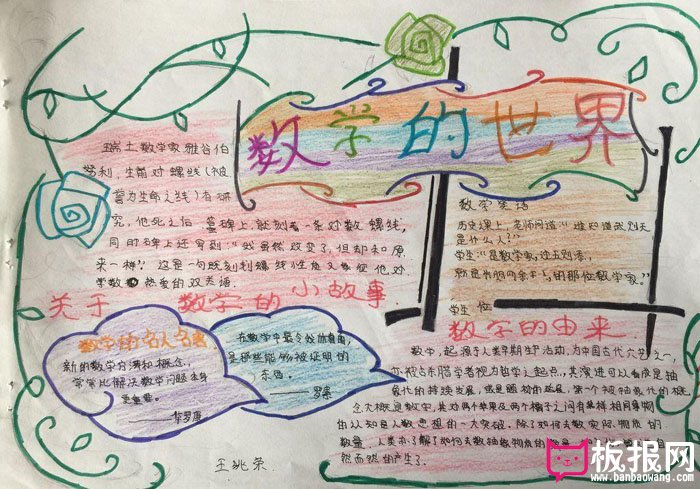 数学的世界
瑞士数学家雅谷伯
努利，生前对螺线（被
誉为生命之线）有研
究，他死之后，墓碑上就刻着一条对数螺线，
同时碑上还写到："我虽然改变了，但却和原
来一样"。这是一句既刻划螺线性质又象征他对
学数热爱的双关语。
关于数学的小故事
数学笑话
历史课上，老师问道："谁知道武则天
是什么人？"
学生："是数学家，
的那位数学家。"
学生
数学的名人名言
新的数学方法和概念，
常常比解决数学问题本身
更重要。
——华罗庚
在数学中最令我欣喜的，
是那些能够被证明的
东西。
——罗素
数学的由来
数学，起源于人类早期生产活动，为中国古代六艺之一，
亦被古希腊学者视为哲学之起点，其演进可以看成是抽
象化的持续发展，或是题材的延展，第一个被抽象化的概
念大概是数字，其对两个苹果及两个橘子之间有某样相同事物
的认知是人类思想的一大突破。除了如何去数实际物质的
数量，人类亦了解了如何去数抽象物质的数量
然而然的产生了。
王兆荣
板报网
www.banbaowang.com